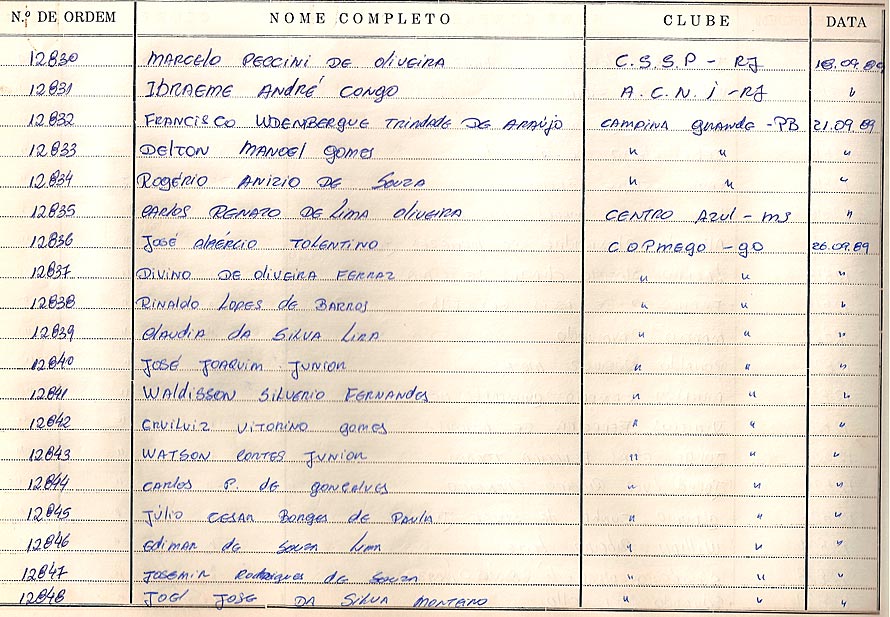 N.º DE ORDEM NOME COMPLETO CLUBE DATA
12830 MARCELO PECCINI DE OLIVEIRA C.S.S.P - RJ 18.09.89
12831 IBRAEME ANDRÉ CONGO A.C.N.I - RJ "
12832 FRANCISCO WDENBERGUE TRINDADE DE ARAÚJO CAMPINA GRANDE - PB 21.09.89
12833 DELTON MANOEL GOMES " " "
12834 ROGÉRIO ANIZIO DE SOUZA " " "
12835 CARLOS RENATO DE LIMA OLIVEIRA CENTRO AZUL - MS "
12836 JOSÉ TOLENTINO COPMEGO - GO 26.09.89
12837 DIVINO DE OLIVEIRA FERRAZ " " "
12838 RINALDO LOPES DE BARROS " " "
12839 CLAUDIA DA SILVA LIRA " " "
12840 JOSÉ JOAQUIM JUNIOR " " "
12841 WALDISSON SILVERIO FERNANDES " " "
12842 VITORINO GOMES " " "
12843 WATSON CORTES JUNIOR " " "
12844 CARLOS P. DE GONÇALVES " " "
12845 JÚLIO CESAR BORGES DE PAULA " " "
12846 EDIMAR DE SOUZA LIMA " " "
12847 JOSEMIR RODRIGUES DE SOUZA " " "
12848 JOEL JOSE DA SILVA MONTEIRO " " "